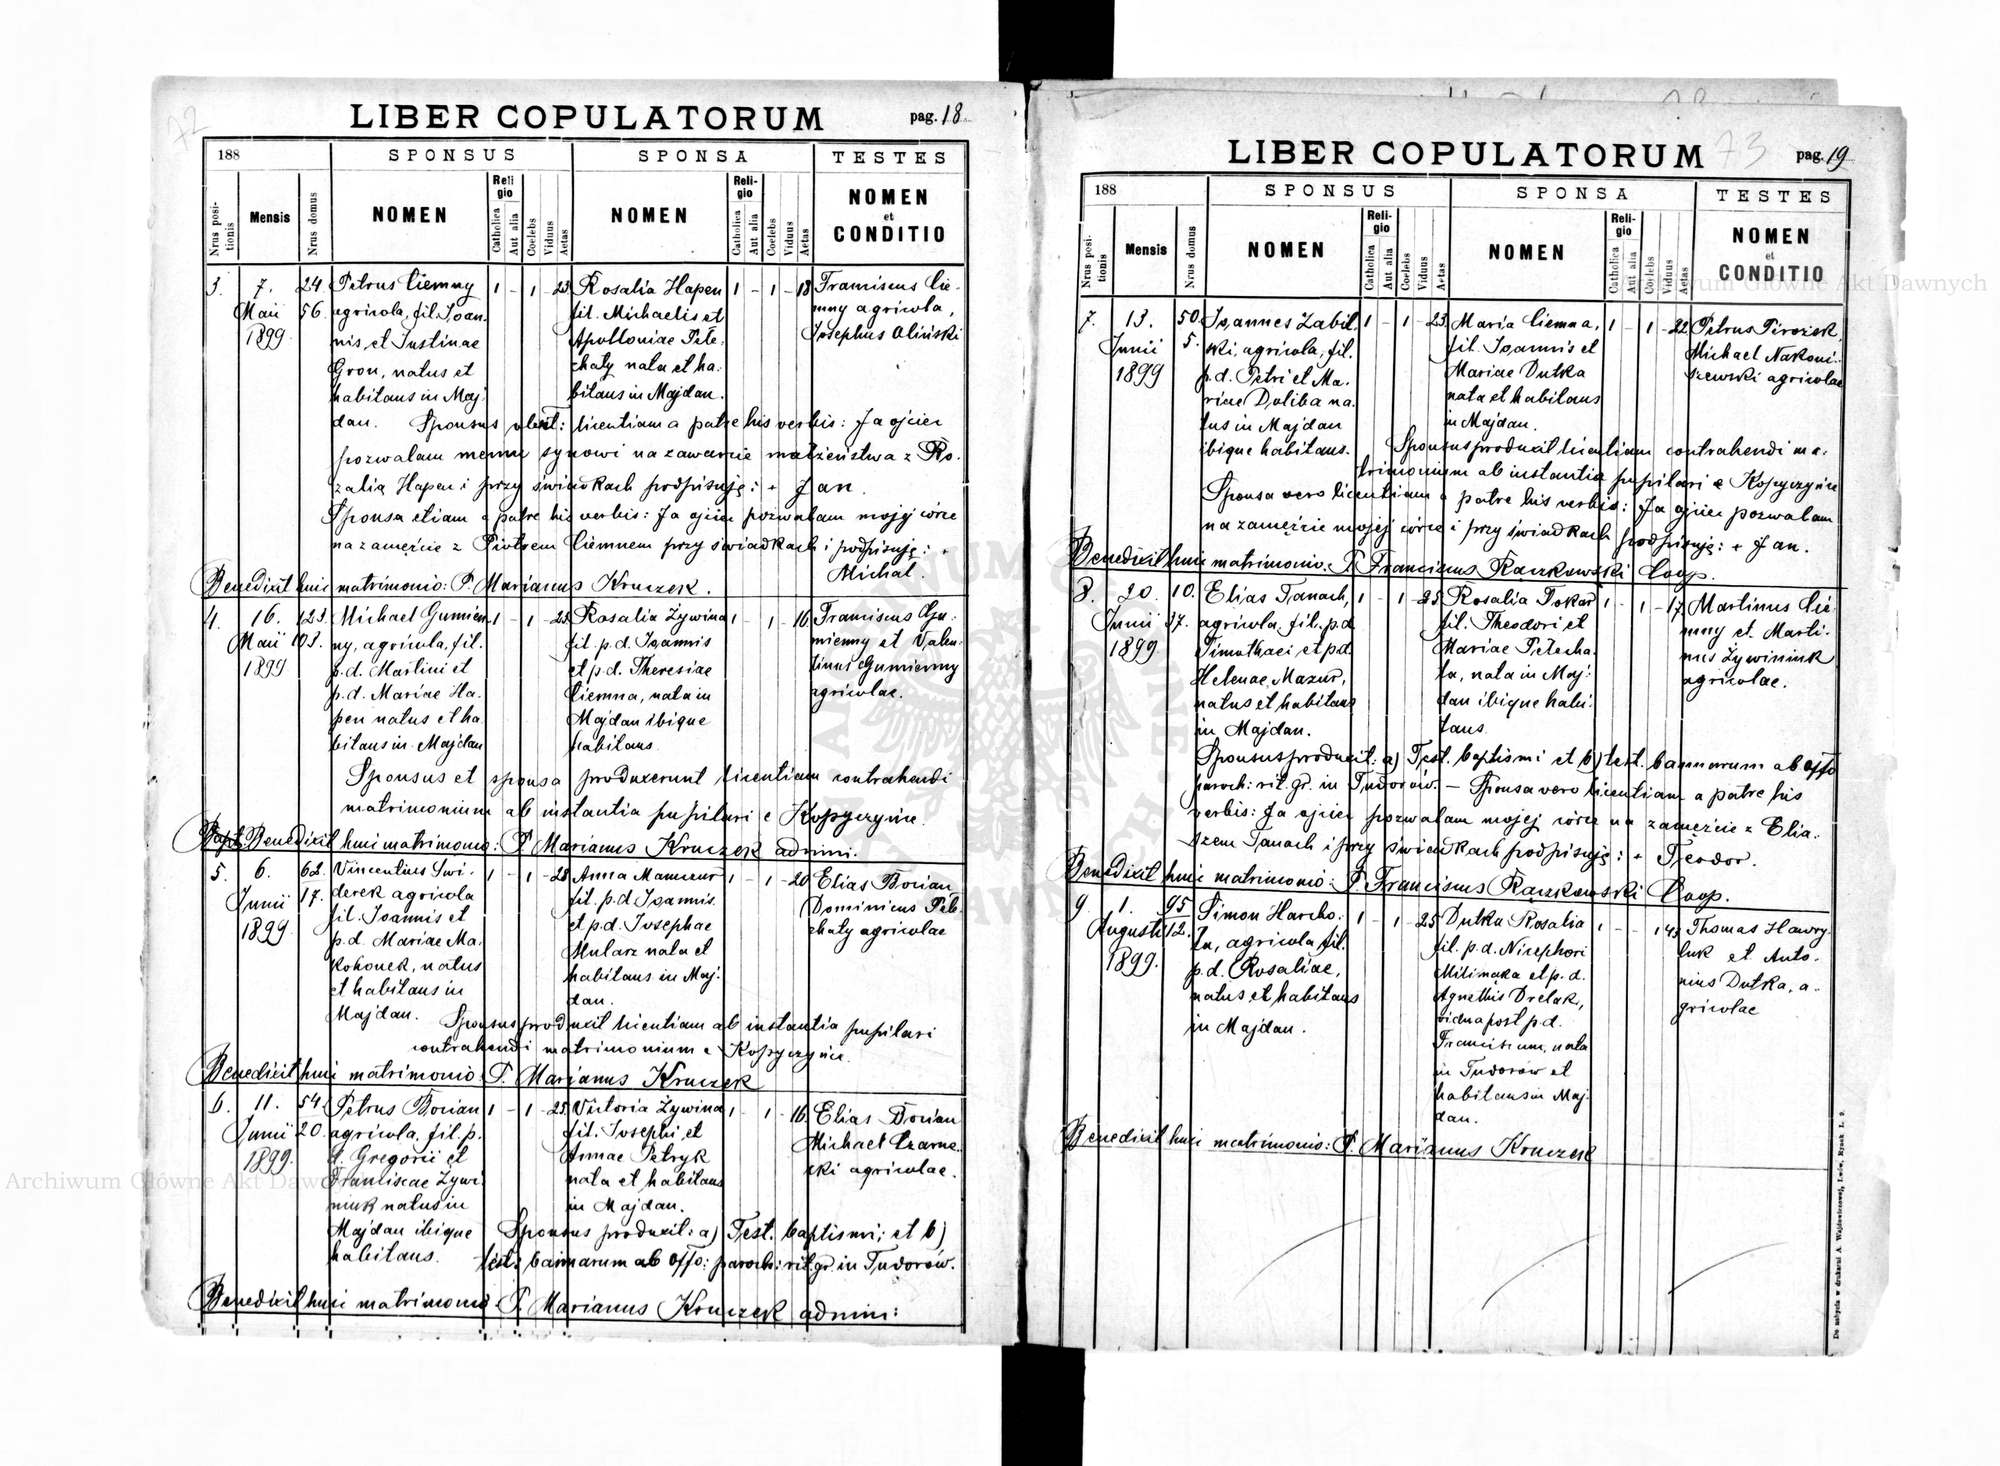 LIBER COPULATORUM pag. 18
188 SPONSUS SPONSA TESTES
Nrus positionis Mensis Nrus domus NOMEN Religio Catholica Aut alia Coelebs Viduus Aetas NOMEN Religio Catholica Aut alia Coelebs Viduus Aetas NOMEN et CONDITIO
3. 7. 24 Petrus Ciemny 1 - 1 - 23 Rosalia Hapen 1 - 1 - 18 Franciscus Cie-
Maii 56. agricola, fil. Joan- fil. Michaelis et mny agricola,
1899 nis et Justinae Apolloniae Pele- Josephus Oliński
Gron, natus et chaty nata et ha-
habitans in Maj- bitans in Majdan.
dan. Sponsus licentiam a patre his verbis: Ja ojciec
pozwalam memu synowi na zawarcie małżeństwa z Ro-
zalią Hapen i przy świadkach podpisuję: + Jan.
Sponsa etiam a patre his verbis: Ja ojciec pozwalam mojej córce
na zamęście z Piotrem Ciemnem przy świadkach i podpisuję: +
Michał.
Benedixit huic matrimonio: P. Marianus Kruczek.
4. 16. 123. Michael Gumien- 1 - 1 - 25 Rosalia Żywina 1 - 1 - 16 Franciscus Gu-
Maii 103. ny, agricola, fil. fil. p.d. Joannis mienny et Valen-
1899 p.d. Martini et et p.d. Theresiae tinus Gumienny
p.d. Mariae Ha- Ciemna, nata in agricolae.
pen natus et ha- Majdan ibique
bitans in Majdan habitans.
Sponsus et sponsa produxerunt licentiam contrahendi
matrimonium ab instantia pupilari e Kopyczyńce.
Benedixit huic matrimonio: P. Marianus Kruczek admini.
5. 6. 62. Vincentius Świ- 1 - 1 - 28 Anna Mamczur 1 - 1 - 20 Elias Bocian
Junii 17. derek agricola fil. p.d. Joannis Dominicus Pele-
1899 fil. Joannis et et p.d. Josephae chaty agricolae
p.d. Mariae Ma- Mularz nata et
kohonek, natus habitans in Maj-
et habitans in dan.
Majdan. Sponsus produxit licentiam ab instantia pupilari
contrahendi matrimonium e Kopyczyńce.
Benedixit huic matrimonio: P. Marianus Kruczek
6. 11. 54. Petrus Bocian 1 - 1 - 25 Victoria Żywina 1 - 1 - 16 Elias Bocian
Junii 20. agricola, fil. p. fil. Josephi et Michael Czarne-
1899. d. Gregorii et Annae Petryk cki agricolae.
Franciscae Żywi- nata et habitans
niuk natus in in Majdan.
Majdan ibique Sponsus produxit: a) Test. baptismi; et b)
habitans. test. bannorum ab offo: paroch: rit. gr. in Tudorów.
Benedixit huic matrimonio P. Marianus Kruczek admin:
LIBER COPULATORUM 73 pag. 19
188 SPONSUS SPONSA TESTES
Nrus positionis Mensis Nrus domus NOMEN Religio Catholica Aut alia Coelebs Viduus Aetas NOMEN Religio Catholica Aut alia Coelebs Viduus Aetas NOMEN et CONDITIO
7. 13. 50. Joannes Zabil- 1 - 1 - 23. Maria Ciemna, 1 - 1 - 22 Petrus Pirożek
Junii 5. ski, agricola, fil. fil. Joannis et Michael Nakoni-
1899 p.d. Petri et Ma- Mariae Dutka szewski agricolae
riae Doliba na- nata et habitans
tus in Majdan in Majdan.
ibique habitans. Sponsus produxit licentiam contrahendi ma-
trimonium ab instantia pupilari e Kopyczyńce
Sponsa vero licentiam a patre his verbis: Ja ojciec pozwalam
na zamęście mojej córce i przy świadkach podpisuję: + Jan.
Benedixit huic matrimonio: P. Franciscus Raczkowski Coop.
8. 20. 10. Elias Tanach, 1 - 1 - 25 Rosalia Tokar 1 - 1 - 17 Martinus Cie-
Junii 37. agricola, fil. p.d. fil. Theodori et mny et Marti-
1899. Timothaei et p.d. Mariae Pelecha- nus Żywiniuk
Helenae Mazur, ta, nata in Maj- agricolae.
natus et habitans dan ibique habi-
in Majdan. tans.
Sponsus produxit: a) Test. baptismi et b) test. bannorum ab offo
paroch: rit. gr. in Tudorów. - Sponsa vero licentiam a patre his
verbis: Ja ojciec pozwalam mojej córce na zamęście z Elia-
szem Tanach i przy świadkach podpisuję: + Teodor.
Benedixit huic matrimonio: P. Franciscus Raczkowski Coop.
9. 1. 95 Simon Harcho- 1 - 1 - 25 Dutka Rosalia 1 - - 1 43 Thomas Hawry-
Augusti 12. ta, agricola, fil. fil. p.d. Nicephori luk et Anto-
1899. p.d. Rosaliae, Militiaka et p.d. nius Dutka, a-
natus et habitans Agnethis Drelak, gricolae
in Majdan. vidua post p.d.
Franciscum, nata
in Tudorów et
habitans in Maj-
dan.
Benedixit huic matrimonio: P. Marianus Kruczek
Do nabycia w drukarni A. Wajdowiczowej, Lwów, Rynek L. 9.
Archiwum Główne Akt Dawnych